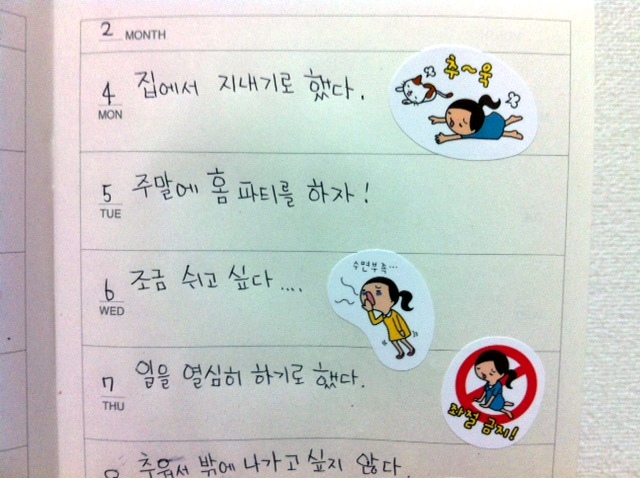 2 MONTH
4 집에서 지내기로 했다.
MON
추~욱
5 주말에 홈 파티를 하자!
TUE
6 조금 쉬고 싶다....
WED
수면부족...
7 일을 열심히 하기로 했다.
THU
좌절 금지!
8 추워서 밖에 나가고 싶지 않다.